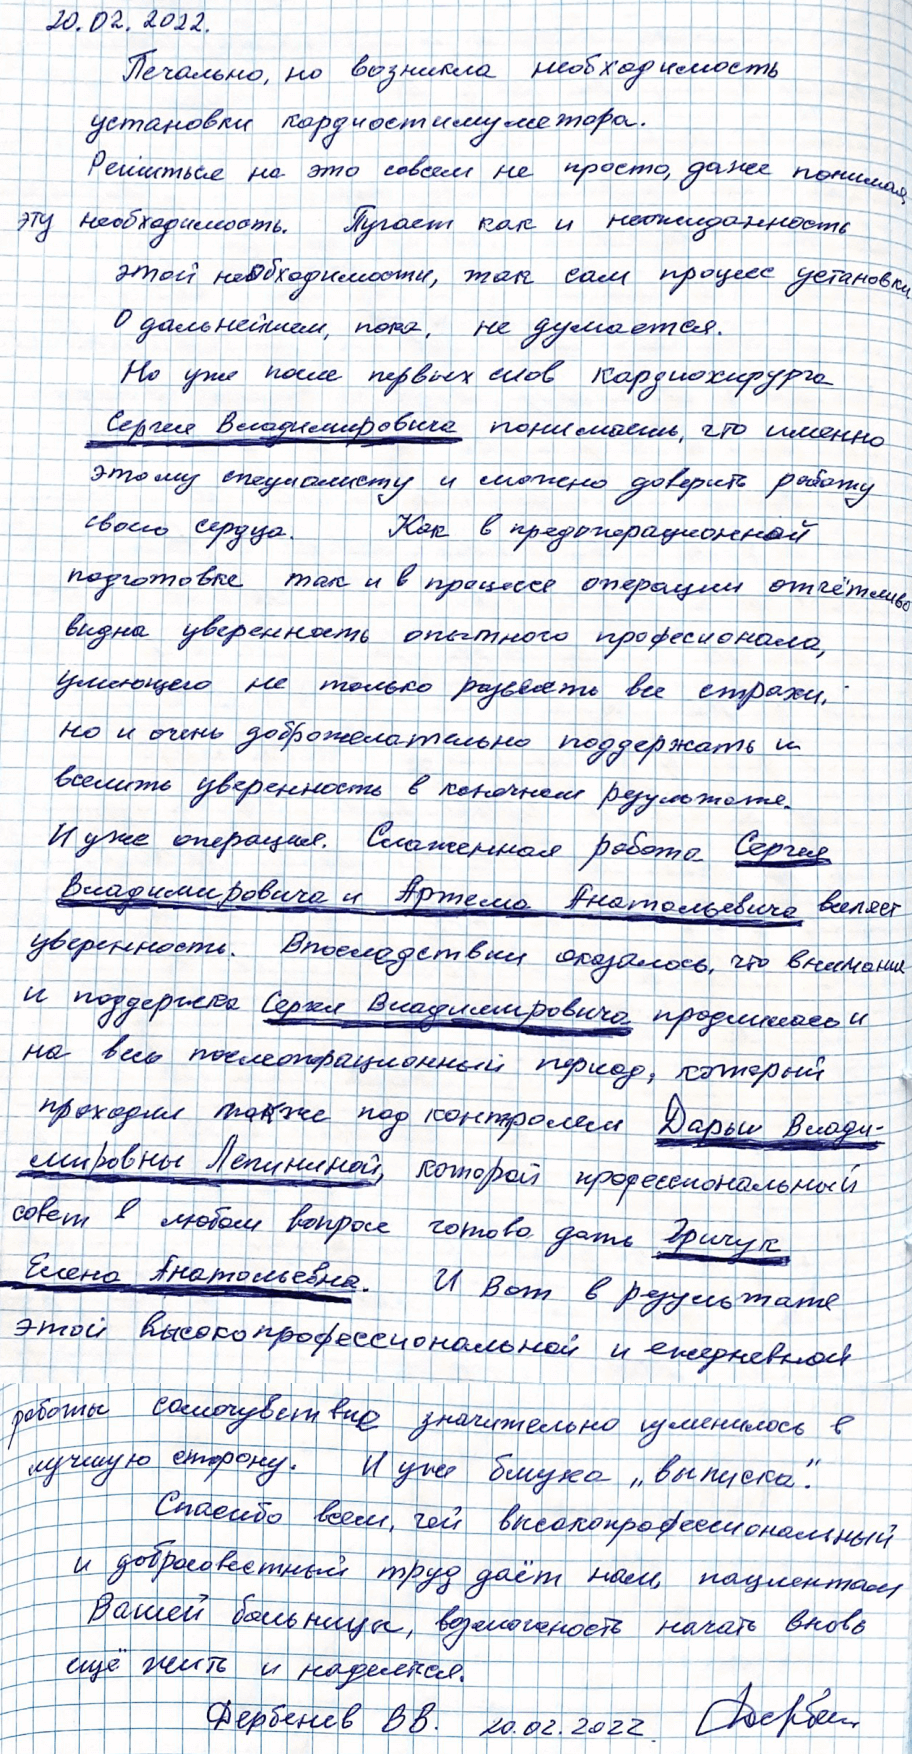 20.02.2022.
Печально, но возникла необходимость
установки кардиостимулетора.
Решиться на это совсем не просто, даже понимая
эту необходимость. Пугает как и неожиданность
этой необходимости, так сам процесс установки.
О дальнейшем, пока, не думается.
Но уже после первых слов кардиохирурга
Сергея Владимировича понимаешь, что именно
этому специалисту и можно доверить работу
своего сердца. Как в предоперационной
подготовке так и в процессе операции отчётливо
видна уверенность опытного професионала,
умеющего не только развеять все страхи,
но и очень доброжелательно поддержать и
вселить уверенность в конечном результате.
И уже операция. Слаженная работа Сергея
Владимировича и Артема Анатольевича вселяет
уверенность. Впоследствии оказалось, что внимание
и поддержка Сергея Владимировича продлилась и
на весь послеоперационный период, который
проходил также под контролем Дарьи Влади-
мировны Лепилиной, которой профессиональный
совет в любом вопросе готова дать Гричук
Елена Анатольевна. И вот в результате
этой высокопрофессиональной и ежедневной
работы самочувствие значительно изменилось в
лучшую сторону. И уже близка „выписка".
Спасибо всем, чей высокопрофессиональный
и добросовестный труд даёт нам, пациентам
Вашей больницы, возможность начать вновь
ещё жить и надеятся.
Дербенев В В. 20.02.2022.